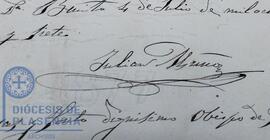 Benito 4 de Julio de mil oc
y siete
Julian Muñoz
DIÓCESIS DE
PLASENCIA
dignisimo Obispo de